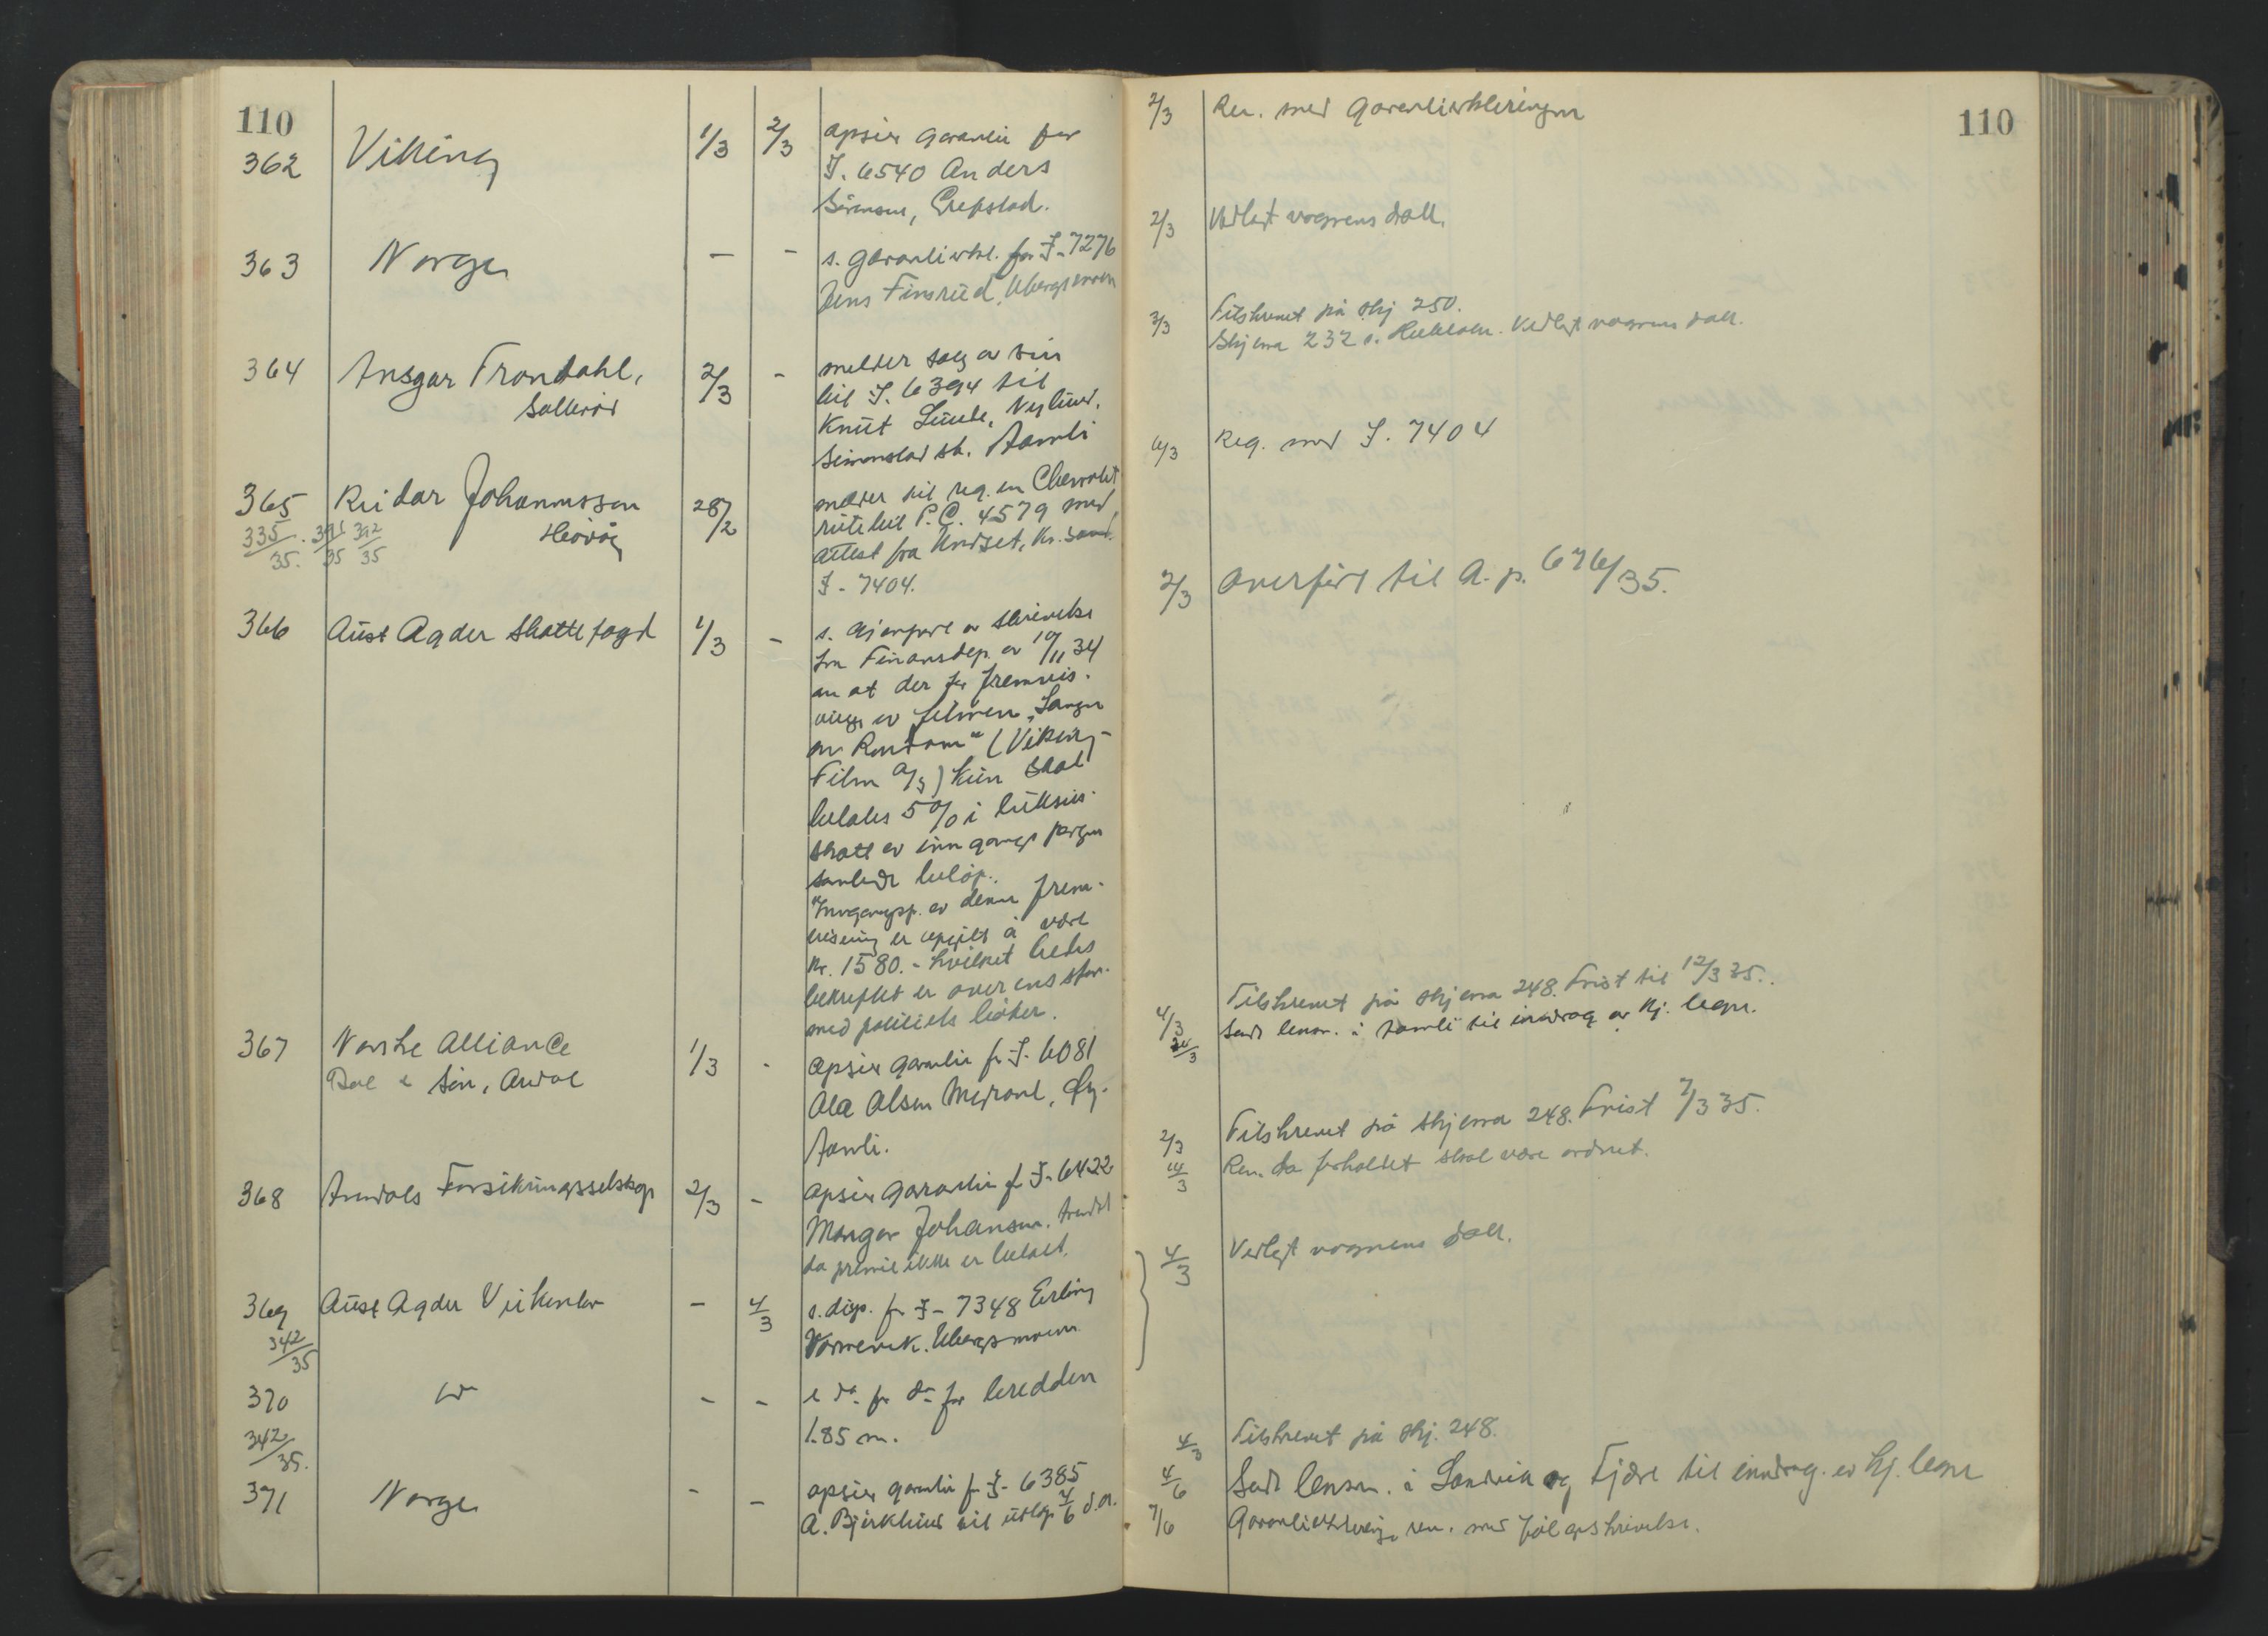 110
362 Viking 1/3 2/3 opsier garanti for
I. 6540 Anders
Sørensen, Grepstad.
363 Norge - - s. garantierkl. for I-7276
Jens Finsrud,
364 Ansgar Trondahl, 2/3 - melder salg av sin
Sollerød bil I. 6394 til
Knut Lunde, Nylund,
Simonstad st. Åamli
365 Reidar Johannessen 28/2 møter til reg. en Chevrolet
335/35. 391/35 392/35 Høvåg rutebil P.C. 4579 med
attest fra Undset, Kr.sand.
I-7404.
366 Aust Agder skattefogd 1/3 - s. gjenpart av skrivelse
fra Finansdep. av 10/11 34
om at der for fremvis-
ning av filmen „Sangen
om Rondane“ (Viking-
Film A/S) kun skal
betales 5% i luksus-
skatt av inngangspengers
samlede beløp.
Inngangsp. av denne frem-
visning er opgitt å være
kr. 1580.- hvilket bedes
bekreftet er overensstem.
med politiets bøker.
367 Norske Alliance 1/3 - opsier garanti for I-6081
Dal & Søn, Arendal Ola Olsen
Åamli.
368 Arendals Forsikringsselskap 2/3 - opsier garanti f. I-6422
Johansen, Arendal
da premie ikke er betalt.
369 Aust Agder Veikontor - 4/3 s. disp. for I-7348 Erling
342/35
370 do - - s. do. for do. for bredden
342/35. 1.85 m.
371 Norge - - opsier garanti f. I-6385
A. Bjørkhus til utløp 4/6 d.å.
110
2/3 Ren. med garantierklæringen
2/3 Vedlagt vognens dok.
3/3 Tilskrevet på skj 250.
Skjema 232 s. Vedlagt vognens dok.
6/3 Reg. med I. 7404
2/3 Overført til A. p. 676/35.
4/3 Tilskrevet på skjema 248. Frist til 12/3 35.
Sendt lensm. i Åamli til inndrag av kj. legn.
2/3 Tilskrevet på skjema 248. Frist 7/3 35.
14/3 Ren. da forholdet skal være ordnet.
4/3 Vedlagt vognens dok.
4/3 Tilskrevet på skj. 248.
4/6 Sendt lensm. i Landvik og Fjære til inndrag. av kj. legn
7/6 Garantierklæring ren. med følgeskrivelse.